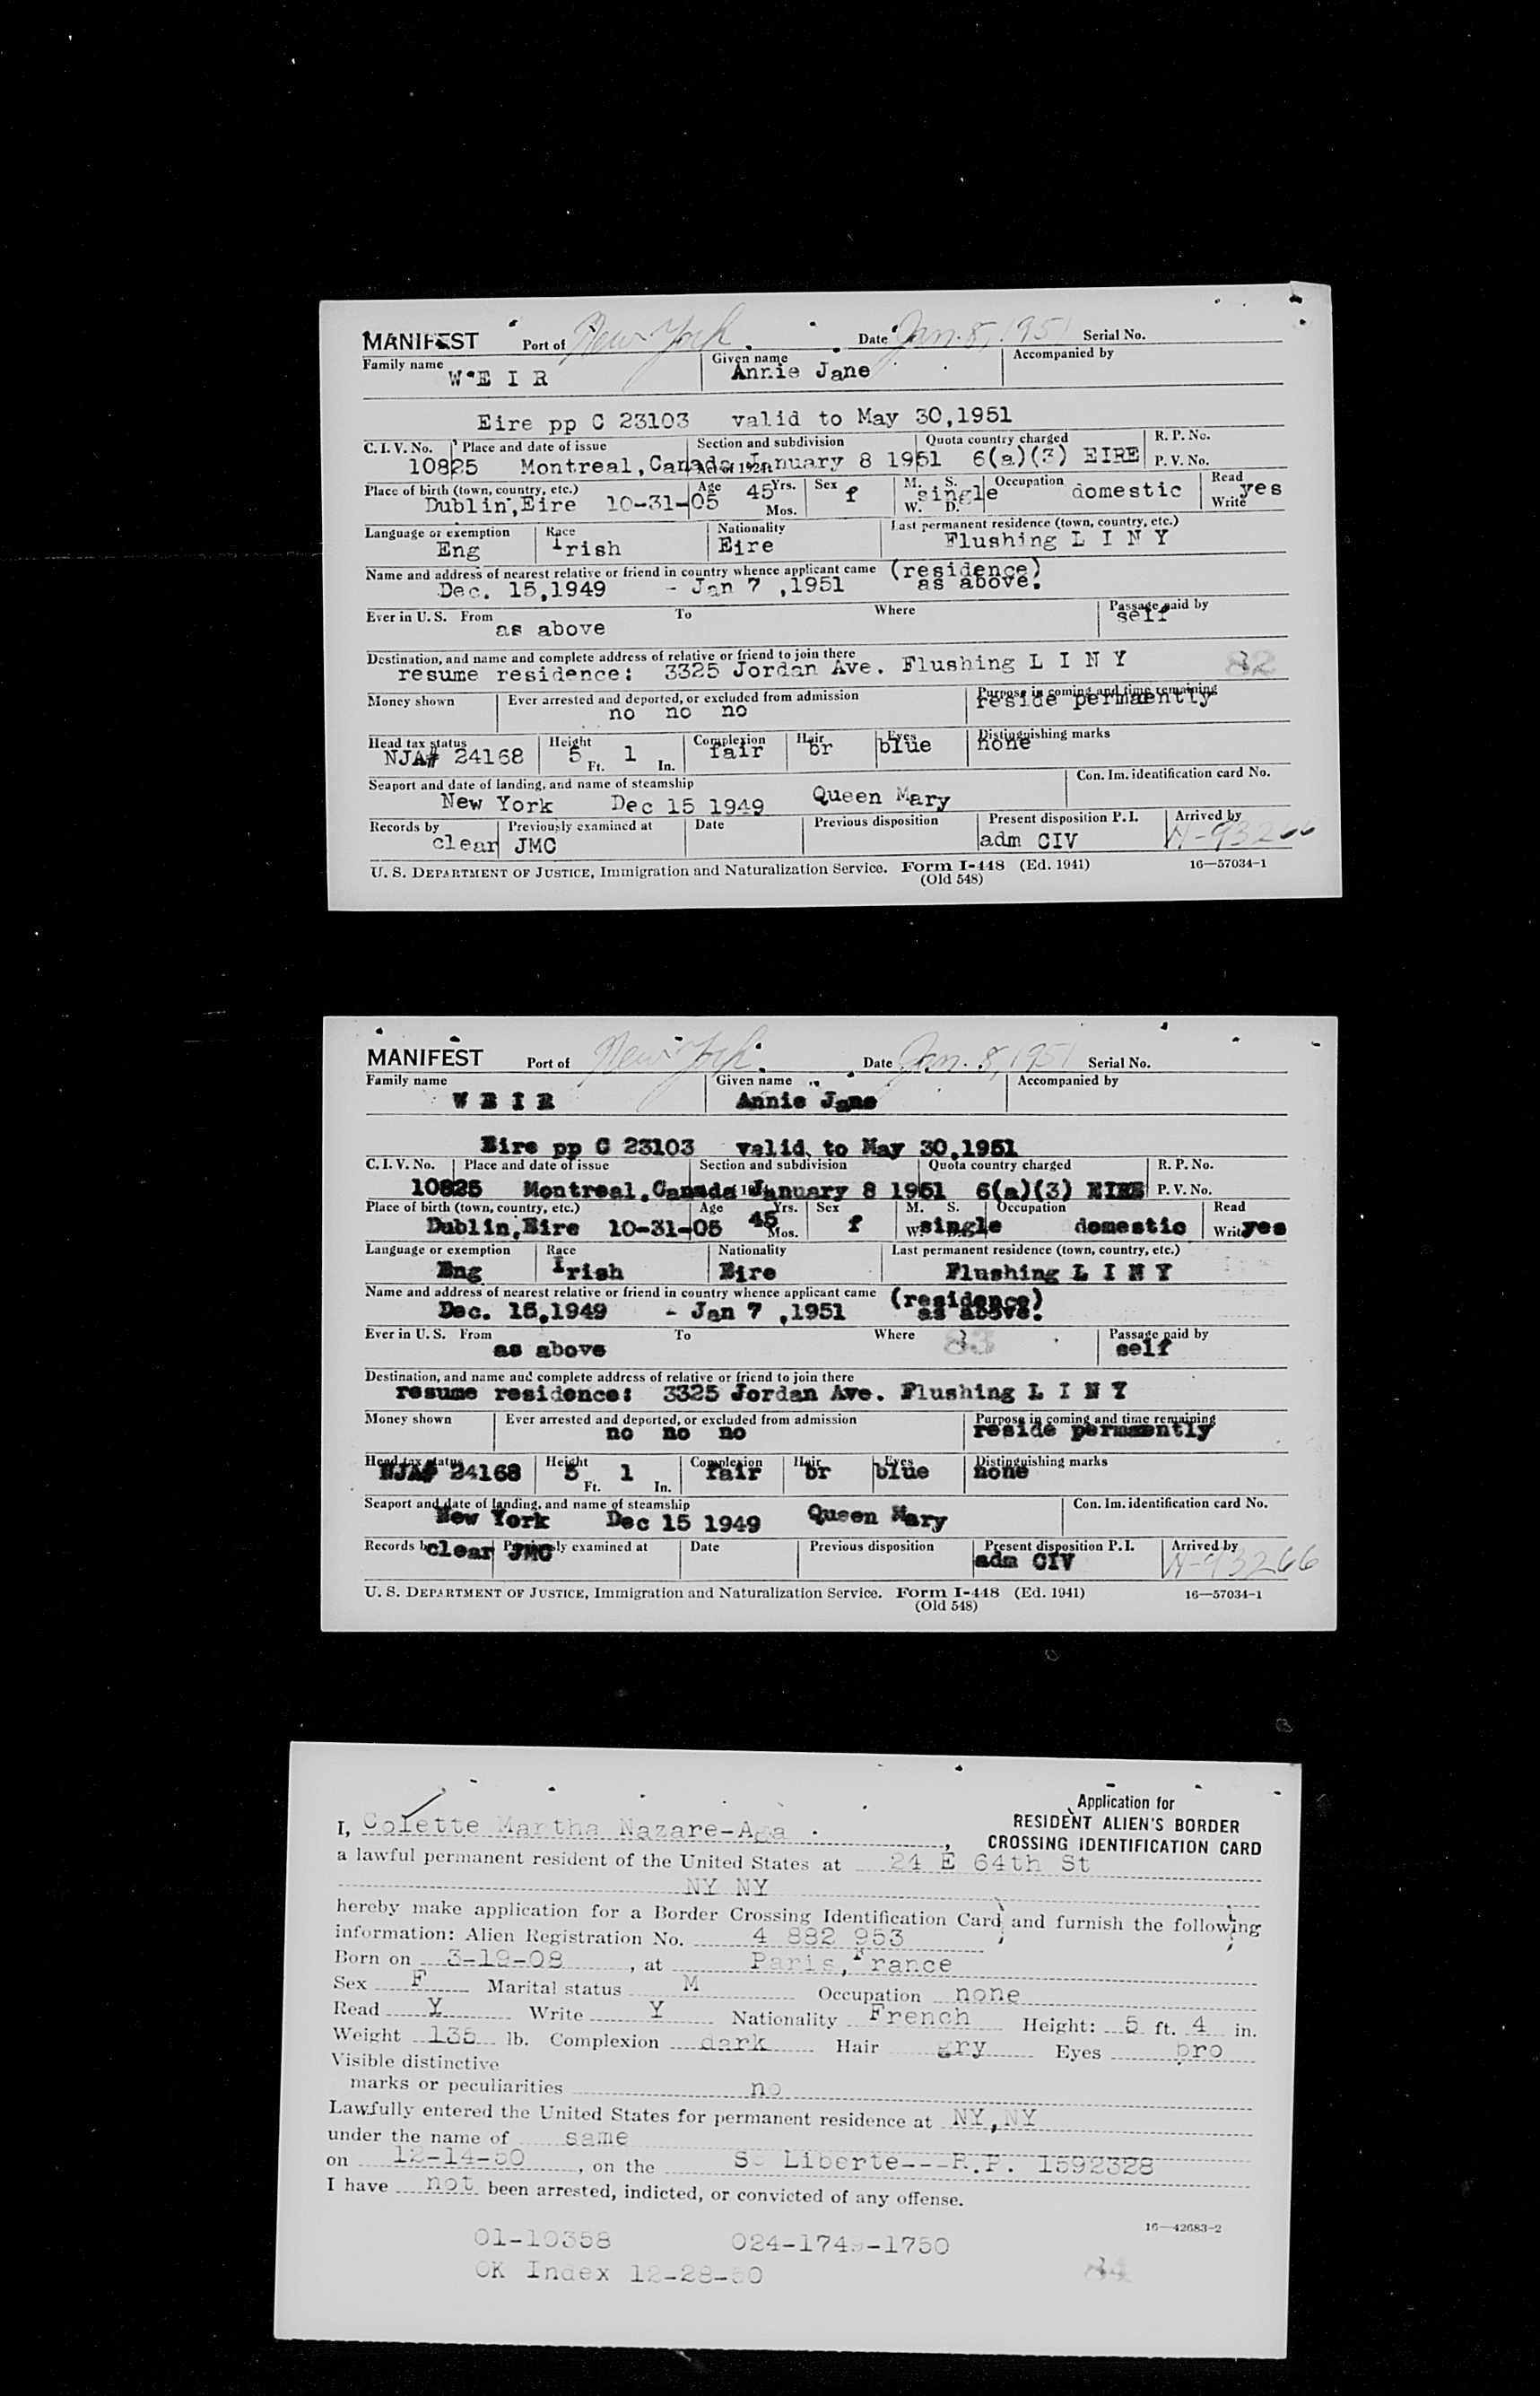 MANIFEST Port of New York Date Jan. 8, 1951 Serial No.
Family name W E I R Given name Annie Jane Accompanied by
Eire pp C 23103 valid to May 30,1951
C. I. V. No. Place and date of issue Section and subdivision Quota country charged R. P. No.
10825 Montreal, Canada January 8 1951 6(a)(3) EIRE P. V. No.
Place of birth (town, country, etc.) Age 45 Yrs. Sex f M. S. single Occupation domestic Read yes
Dublin, Eire 10-31-05 Mos. W. D. Write
Language or exemption Race Nationality Last permanent residence (town, country, etc.)
Eng Irish Eire Flushing L I N Y
Name and address of nearest relative or friend in country whence applicant came (residence)
Dec. 15,1949 - Jan 7 ,1951 as above.
Ever in U. S. From To Where Passage paid by
as above self
Destination, and name and complete address of relative or friend to join there
resume residence: 3325 Jordan Ave. Flushing L I N Y 82
Money shown Ever arrested and deported, or excluded from admission Purpose in coming and time remaining
no no no reside permaently
Head tax status Height Complexion Hair Eyes Distinguishing marks
NJA# 24168 5 Ft. 1 In. fair br blue none
Seaport and date of landing, and name of steamship Con. Im. identification card No.
New York Dec 15 1949 Queen Mary
Records by Previously examined at Date Previous disposition Present disposition P. I. Arrived by
clear JMC adm CIV N-93266
U. S. DEPARTMENT OF JUSTICE, Immigration and Naturalization Service. Form I-448 (Ed. 1941) 16—57034-1
(Old 548)
MANIFEST Port of New York Date Jan. 8, 1951 Serial No.
Family name Given name Accompanied by
W E I R Annie Jane
Eire pp C 23103 valid to May 30,1951
C. I. V. No. Place and date of issue Section and subdivision Quota country charged R. P. No.
10825 Montreal, Canada January 8 1951 6(a)(3) EIRE P. V. No.
Place of birth (town, country, etc.) Age 45 Yrs. Sex M. S. Occupation Read
Dublin, Eire 10-31-05 Mos. f W. single domestic Write yes
Language or exemption Race Nationality Last permanent residence (town, country, etc.)
Eng Irish Eire Flushing L I N Y
Name and address of nearest relative or friend in country whence applicant came (residence)
Dec. 15,1949 - Jan 7 ,1951 as above.
Ever in U. S. From To Where 83 Passage paid by
as above self
Destination, and name and complete address of relative or friend to join there
resume residence: 3325 Jordan Ave. Flushing L I N Y
Money shown Ever arrested and deported, or excluded from admission Purpose in coming and time remaining
no no no reside permaently
Head tax status Height Complexion Hair Eyes Distinguishing marks
NJA# 24168 5 Ft. 1 In. fair br blue none
Seaport and date of landing, and name of steamship Con. Im. identification card No.
New York Dec 15 1949 Queen Mary
Records by Previously examined at Date Previous disposition Present disposition P. I. Arrived by
clear JMC adm CIV N-93266
U. S. DEPARTMENT OF JUSTICE, Immigration and Naturalization Service. Form I-448 (Ed. 1941) 16—57034-1
(Old 548)
Application for
RESIDENT ALIEN'S BORDER
CROSSING IDENTIFICATION CARD
I, Colette Martha Nazare-Aga,
a lawful permanent resident of the United States at 24 E 64th St
NY NY
hereby make application for a Border Crossing Identification Card and furnish the following
information: Alien Registration No. 4 882 953
Born on 3-19-08, at Paris, France
Sex F Marital status M Occupation none
Read Y Write Y Nationality French Height: 5 ft. 4 in.
Weight 135 lb. Complexion dark Hair gry Eyes bro
Visible distinctive
marks or peculiarities no
Lawfully entered the United States for permanent residence at NY, NY
under the name of same
on 12-14-50, on the SS Liberte---R.P. 1592328
I have not been arrested, indicted, or convicted of any offense.
16—42683-2
01-10358 024-1749-1750
OK Index 12-28-50 84